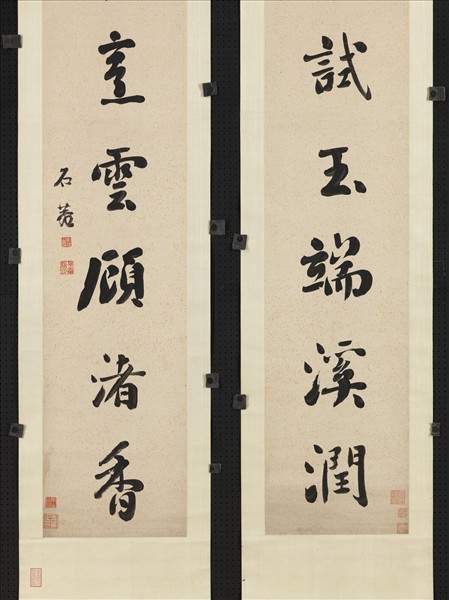 試玉端溪潤
烹雲顧渚香
石菴